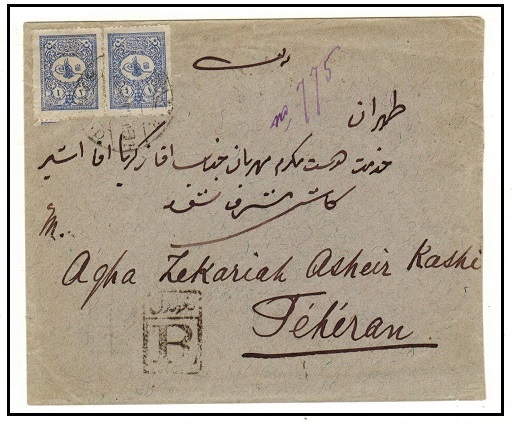 No 775
طهران
خدمت دوست مکرم مهربان جناب آقا زکریا آقا اشیر
کاشی مشرف شود
M.
Agha Zekariah Asheir Kashi
Téhéran
R